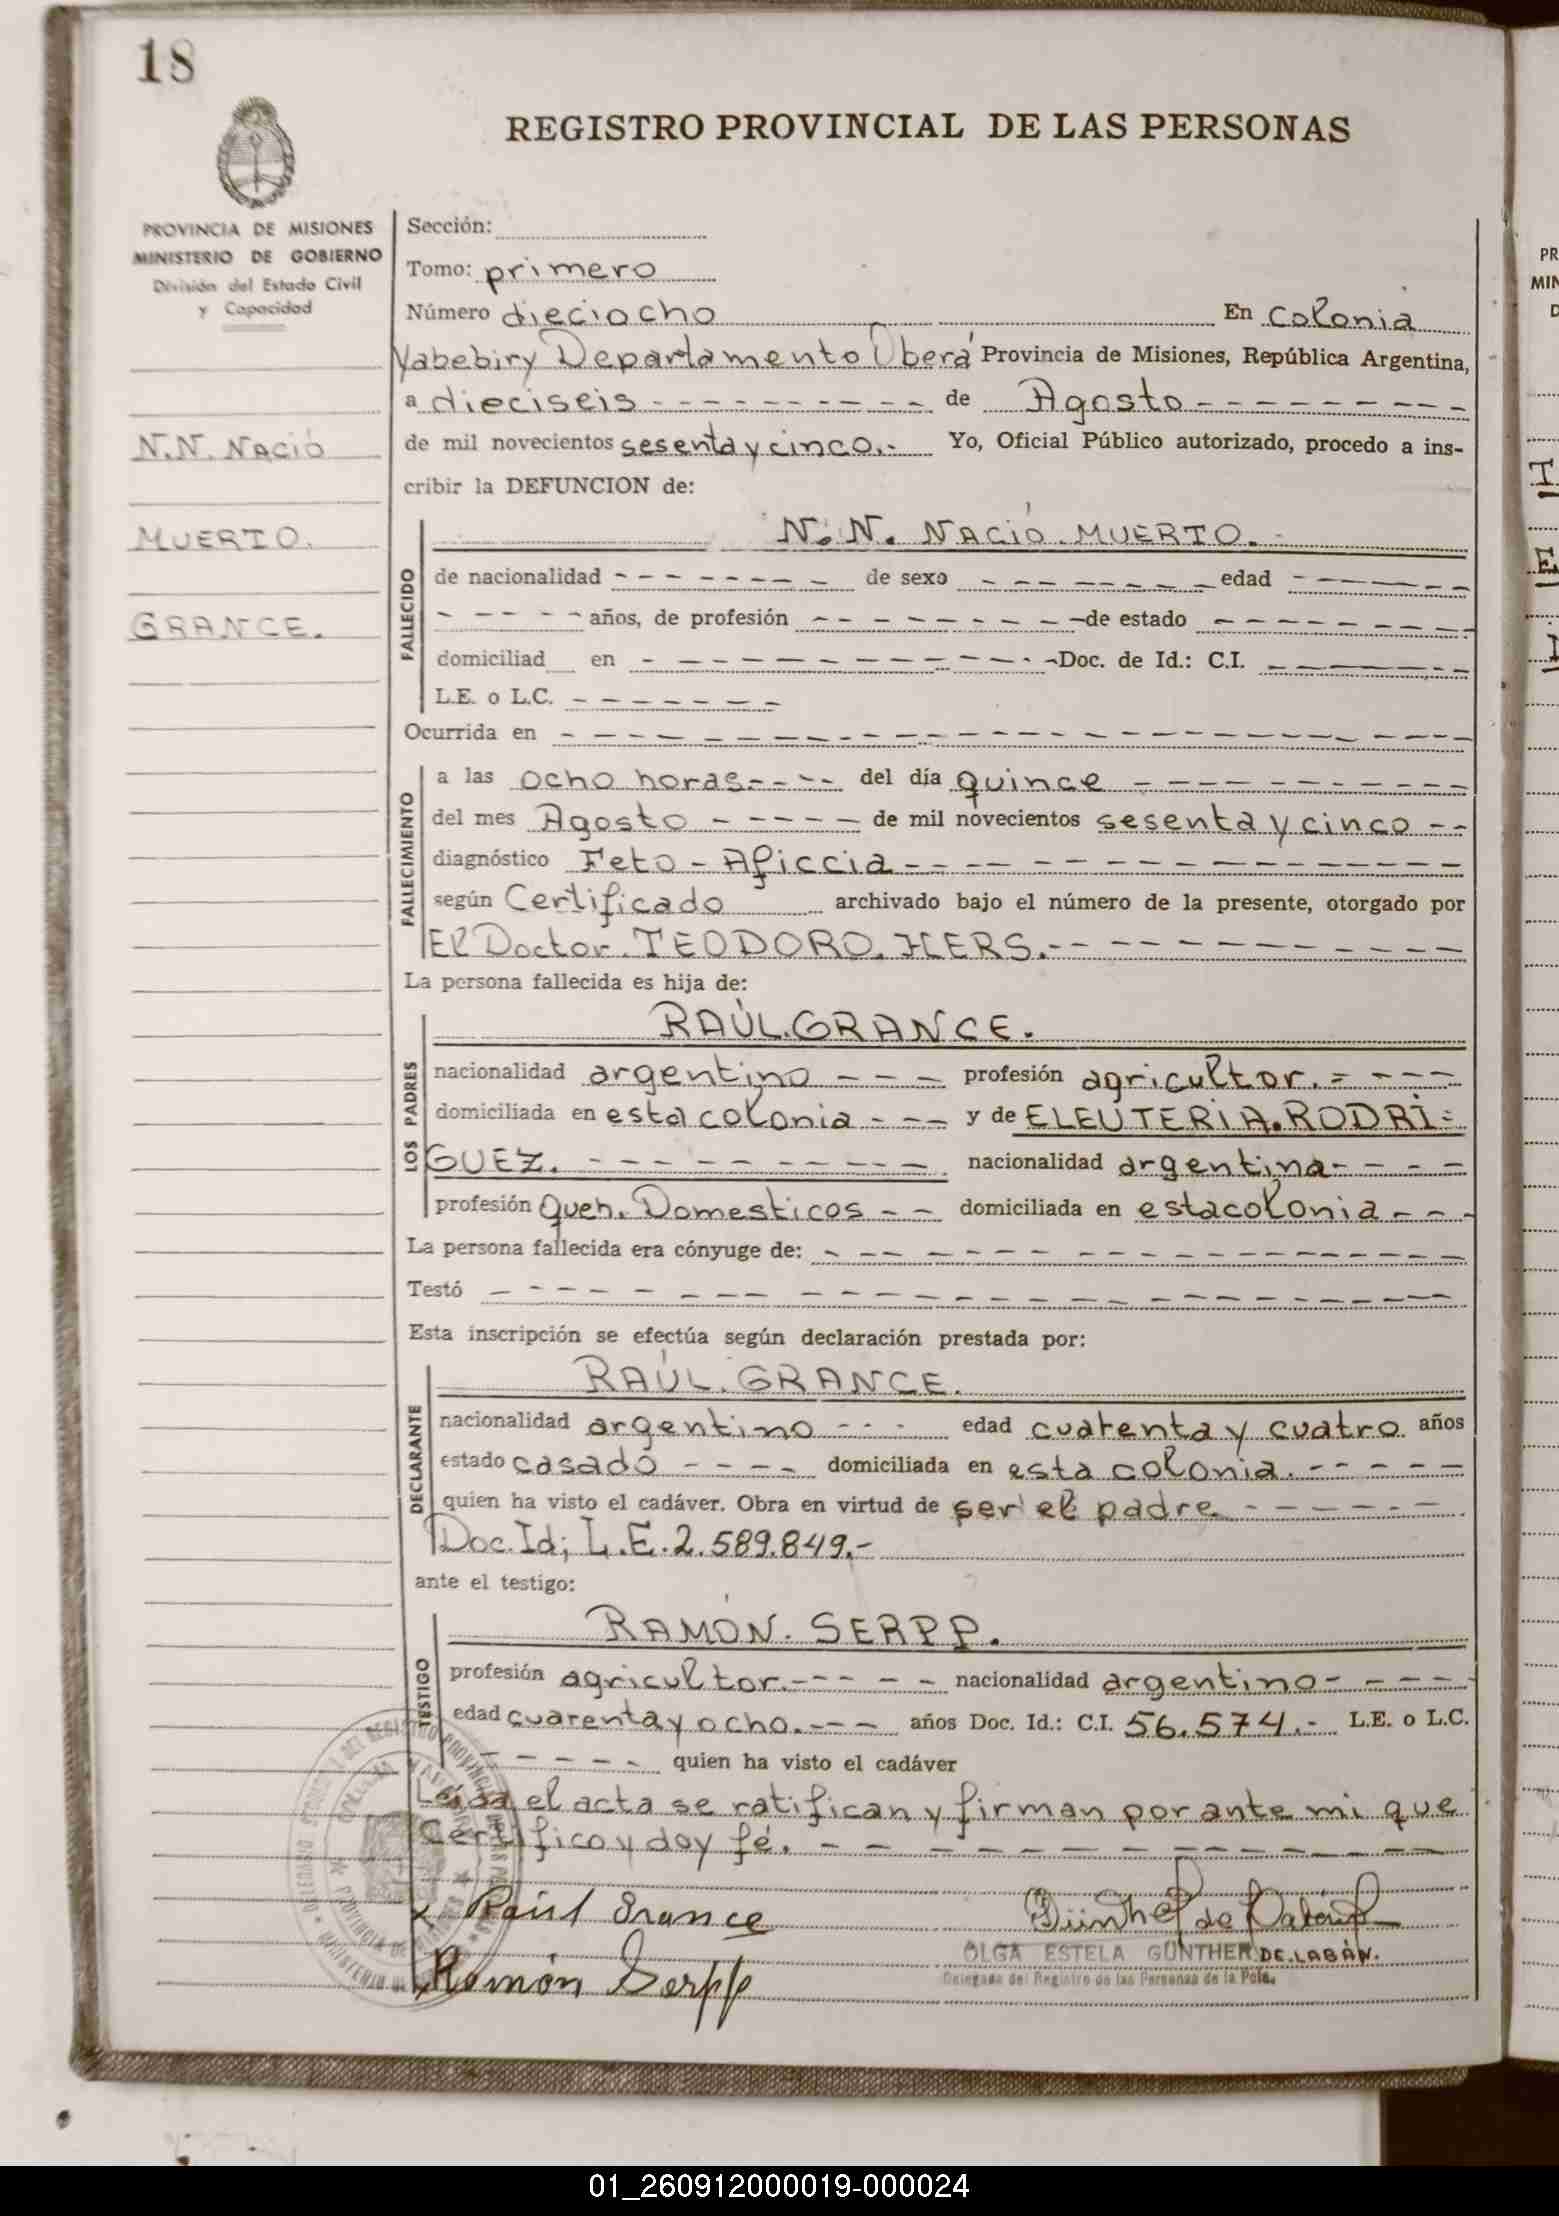 18
REGISTRO PROVINCIAL DE LAS PERSONAS
PROVINCIA DE MISIONES
MINISTERIO DE GOBIERNO
División del Estado Civil
y Capacidad
N.N. NACIÓ
MUERTO.
GRANCE.
Sección:
Tomo: primero
Número dieciocho En Colonia
Yabebiry Departamento Oberá Provincia de Misiones, República Argentina,
a dieciseis - - - - - - - - - - de Agosto - - - - - - - - -
de mil novecientos sesenta y cinco.- Yo, Oficial Público autorizado, procedo a ins-
cribir la DEFUNCION de:
FALLECIDO
N.N. NACIÓ MUERTO.
de nacionalidad - - - - - - - de sexo - - - - - - - - edad - - - - - - -
- - - - - años, de profesión - - - - - - - - - de estado - - - - - - - -
domiciliad en - - - - - - - - - - - - - Doc. de Id.: C.I. - - - - - - -
L.E. o L.C. - - - - - - -
Ocurrida en - - - - - - - - - - - - - - - - - - - - - - -
FALLECIMIENTO
a las ocho horas.- - - - del día quince - - - - - - - - - - -
del mes Agosto - - - - - de mil novecientos sesenta y cinco - -
diagnóstico Feto - Aficcia - - - - - - - - - - - - - - - -
según Certificado archivado bajo el número de la presente, otorgado por
El Doctor. TEODORO. HERS.- - - - - - - - - - - - -
La persona fallecida es hija de:
LOS PADRES
RAÚL.GRANCE.
nacionalidad argentino - - - profesión agricultor.= - - - -
domiciliada en esta colonia - - - y de ELEUTERIA.RODRI=
GUEZ. - - - - - - - - - - nacionalidad argentina - - - -
profesión Queh. Domesticos - - domiciliada en esta colonia - - -
La persona fallecida era cónyuge de: - - - - - - - - - - - - - - - -
Testó - - - - - - - - - - - - - - - - - - - - - - -
Esta inscripción se efectúa según declaración prestada por:
DECLARANTE
RAÚL.GRANCE.
nacionalidad argentino - - - edad cuarenta y cuatro años
estado casado - - - - domiciliada en esta colonia. - - - - -
quien ha visto el cadáver. Obra en virtud de ser el padre - - - - - -
Doc. Id; L.E. 2.589.849.-
ante el testigo:
TESTIGO
RAMÓN. SERPP.
profesión agricultor.- - - - - nacionalidad argentino - - - - -
edad cuarenta y ocho.- - - años Doc. Id.: C.I. 56.574.- L.E. o L.C.
- - - - - - quien ha visto el cadáver
Leída el acta se ratifican y firman por ante mi que
Certifico y doy fé. - - - - - - - - - - - - -
x Raúl Grance
x Ramón Serpp
Günther de Labán
OLGA ESTELA GÜNTHER DE.LABÁN.
Delegada del Registro de las Personas de la Pcia.
PR
MIN
D
T
E
I
01_260912000019-000024